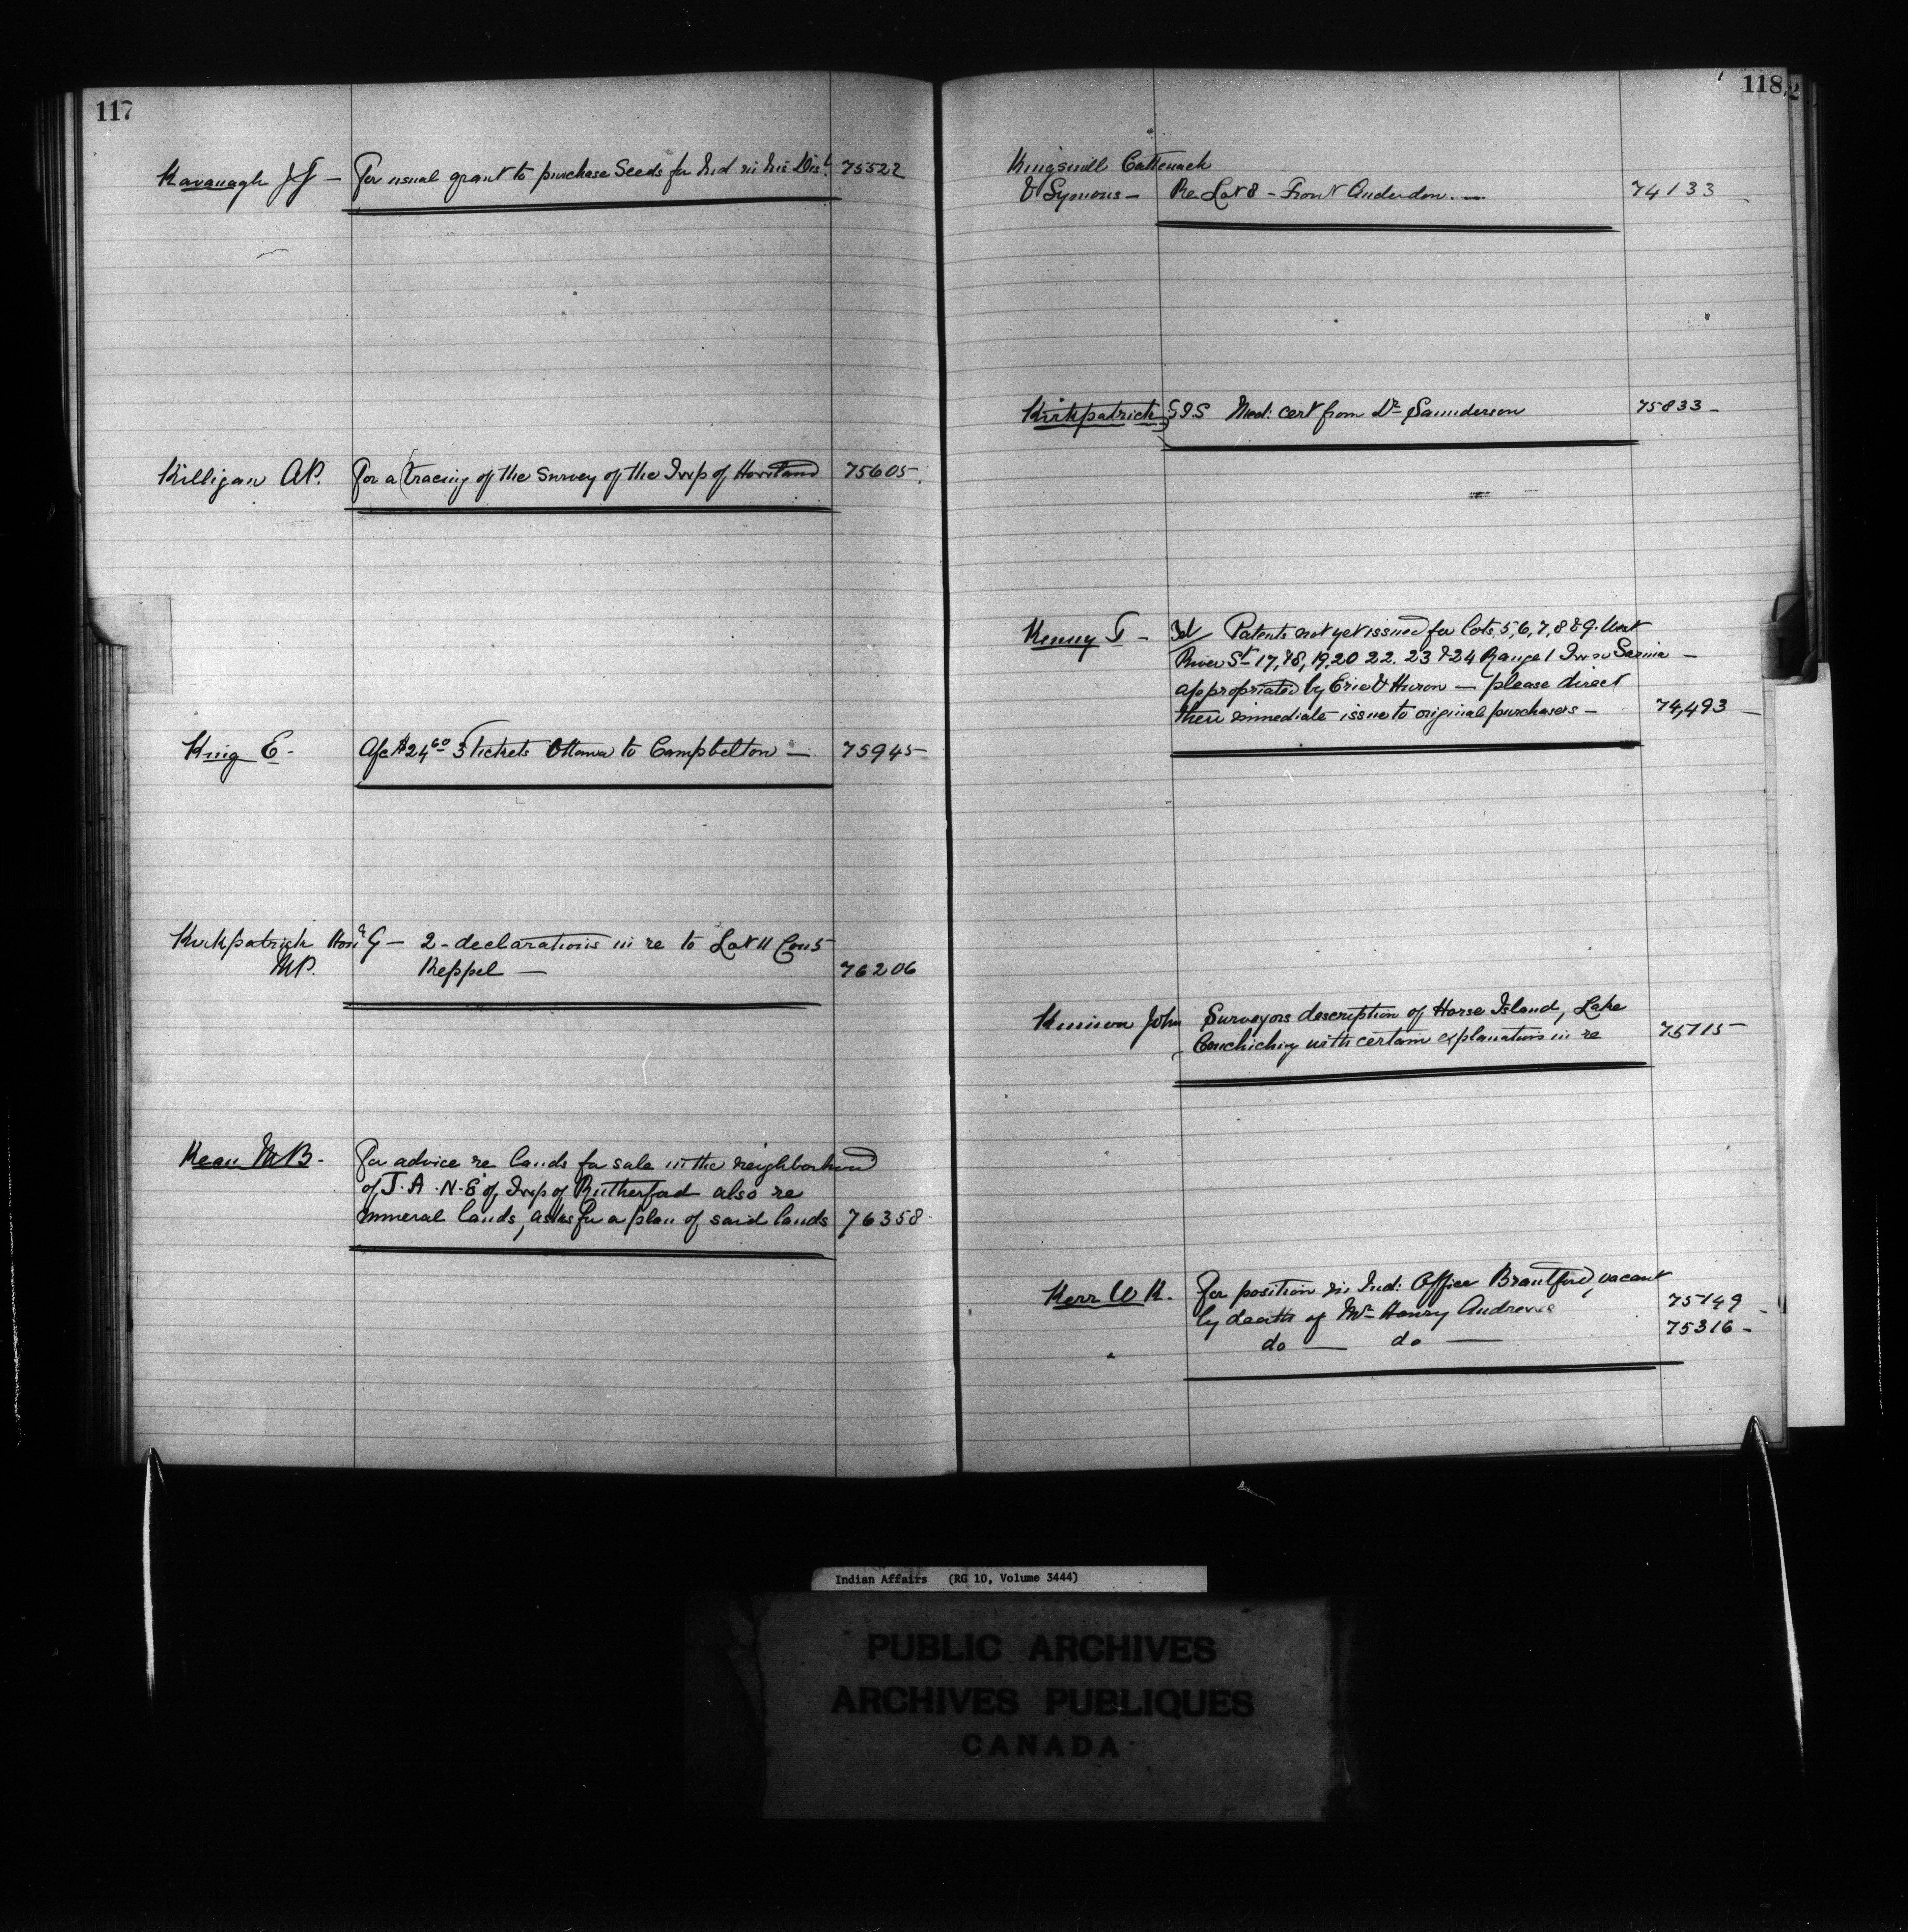 117
Kavanagh J J — For usual grant to purchase Seeds for Ind in his Dist. 75522
Killigan A.P. For a tracing of the survey of the Twp of Howland 75605.
King E. A/c $24.60 3 Tickets Ottawa to Campbelton — 75945
Kirkpatrick Hon. G — 2 - declarations in re to Lot 11 Con 5
M.P. Keppel — 76206
Kean M B. For advice re lands for sale in the neighborhood
of J. A. N. E of Twp of Rutherford also re
mineral lands, asks for a plan of said lands 76358.
118
Kingsmill Cattenach
& Symons — Re Lot 8 - Front Anderdon. — 74133
Kirkpatrick Med: cert from Dr Saunderson 75833 -
Kenny T - Patents not yet issued for lots, 5, 6, 7, 8 & 9. West
River St 17, 18, 19, 20 22. 23 & 24 Range 1 Twn Sarnia —
appropriated by Erie & Huron — please direct
their immediate issue to original purchasers — 74,493
John Surveyors description of Horse Island, Lake
Couchiching with certain explanations in re 75715
Kerr W R. For position in Ind: Office Brantford, vacant
by death of Mr Henry Andrews 75149
do — do — 75316 -
Indian Affairs (RG 10, Volume 3444)
PUBLIC ARCHIVES
ARCHIVES PUBLIQUES
CANADA